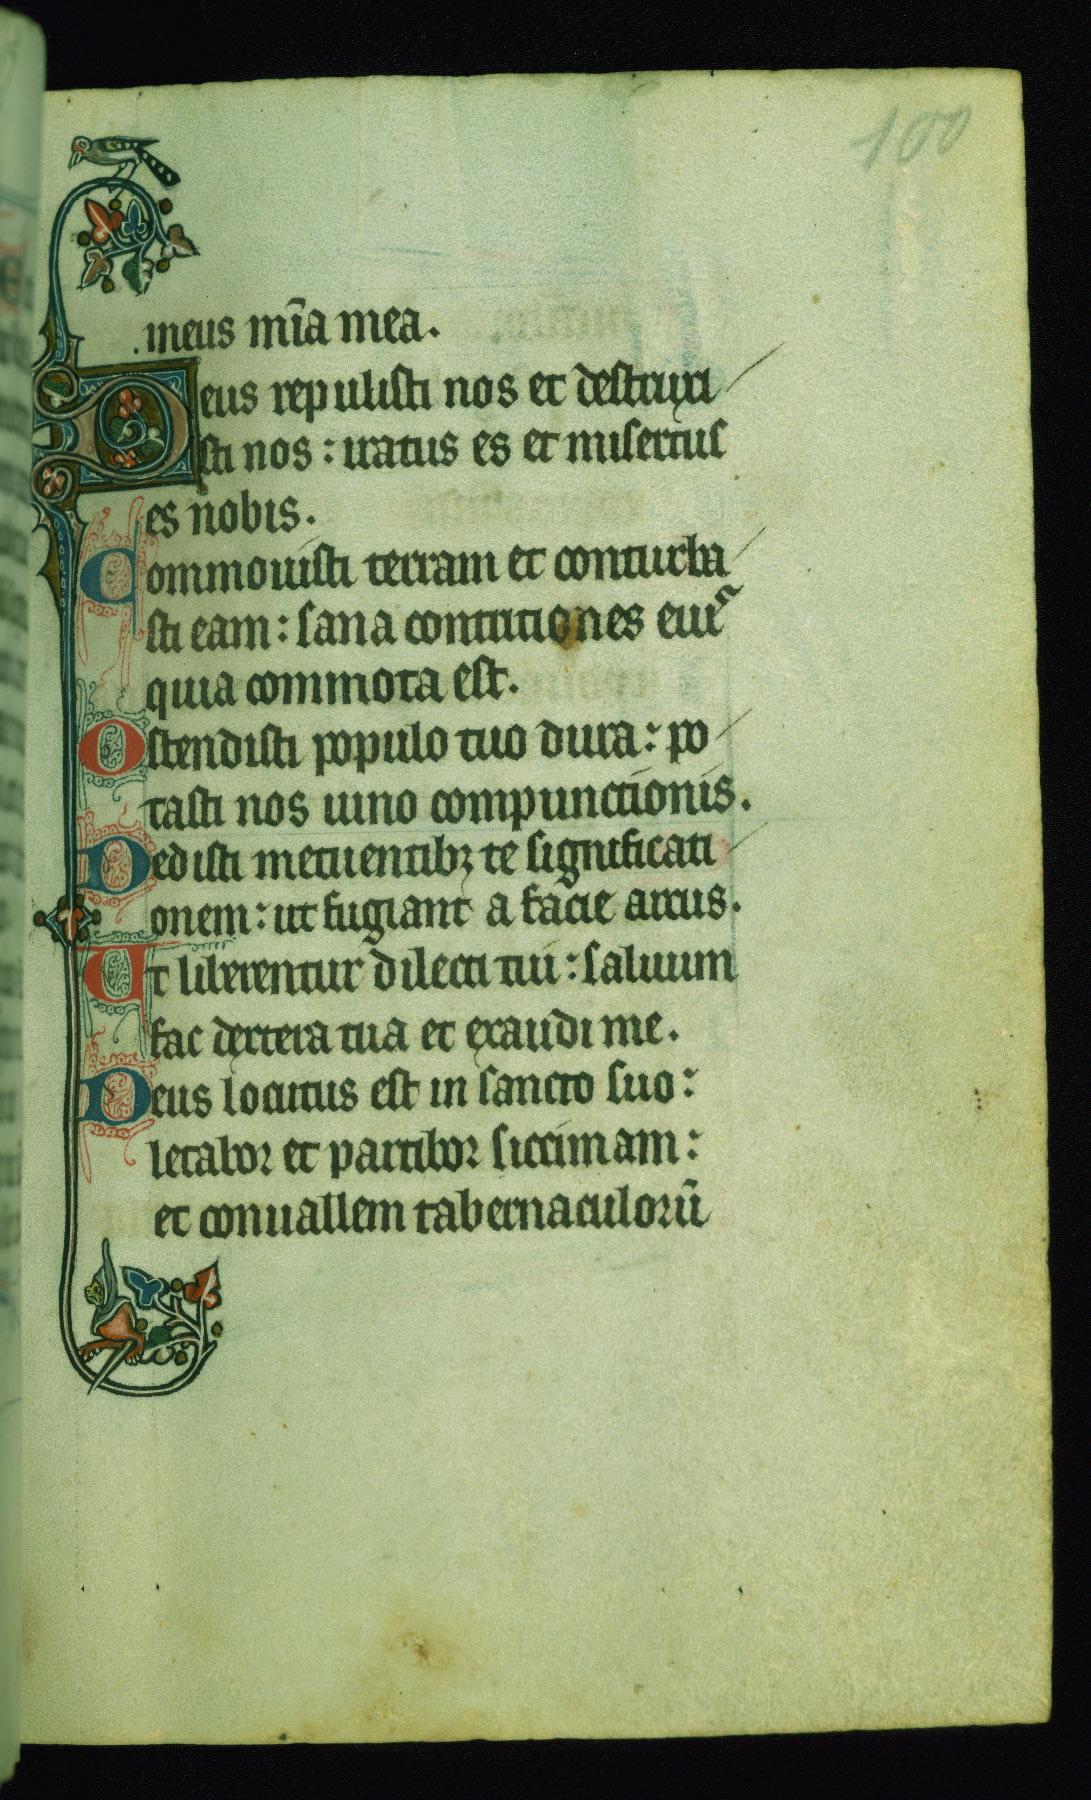 100
meus mīa mea.
Deus repulisti nos et destruxi
sti nos: iratus es et misertus
es nobis.
Commouisti terram et conturba
sti eam: sana contritiones eius
quia commota est.
Ostendisti populo tuo dura: po
tasti nos uino compunctionis.
Dedisti metuentibꝫ te significati
onem: ut fugiant a facie arcus.
Ut liberentur dilecti tui: saluum
fac dextera tua et exaudi me.
Deus locutus est in sancto suo:
letabor et partibor siccimam:
et conuallem tabernaculorū